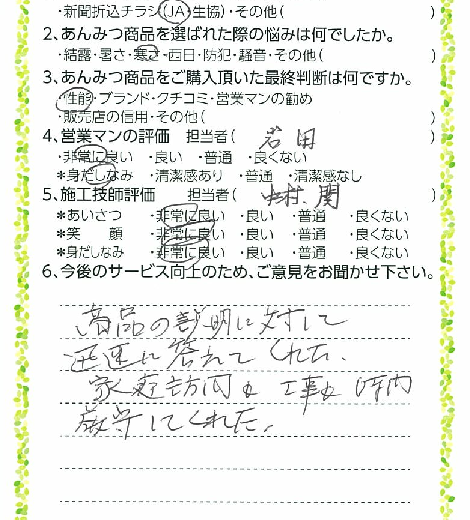 ・新聞折込チラシ・JA・生協)・その他( )
2、あんみつ商品を選ばれた際の悩みは何でしたか。
・結露・暑さ・寒さ・西日・防犯・騒音・その他( )
3、あんみつ商品をご購入頂いた最終判断は何ですか。
・性能・ブランド・クチコミ・営業マンの勧め
・販売店の信用・その他( )
4、営業マンの評価 担当者( 岩田 )
・非常に良い ・良い ・普通 ・良くない
*身だしなみ ・清潔感あり ・普通 ・清潔感なし
5、施工技師評価 担当者( 中村、関 )
*あいさつ ・非常に良い ・良い ・普通 ・良くない
*笑 顔 ・非常に良い ・良い ・普通 ・良くない
*身だしなみ ・非常に良い ・良い ・普通 ・良くない
6、今後のサービス向上のため、ご意見をお聞かせ下さい。
商品の説明に対して
迅速に答えてくれた、
家庭訪問も工事も時間
厳守してくれた。